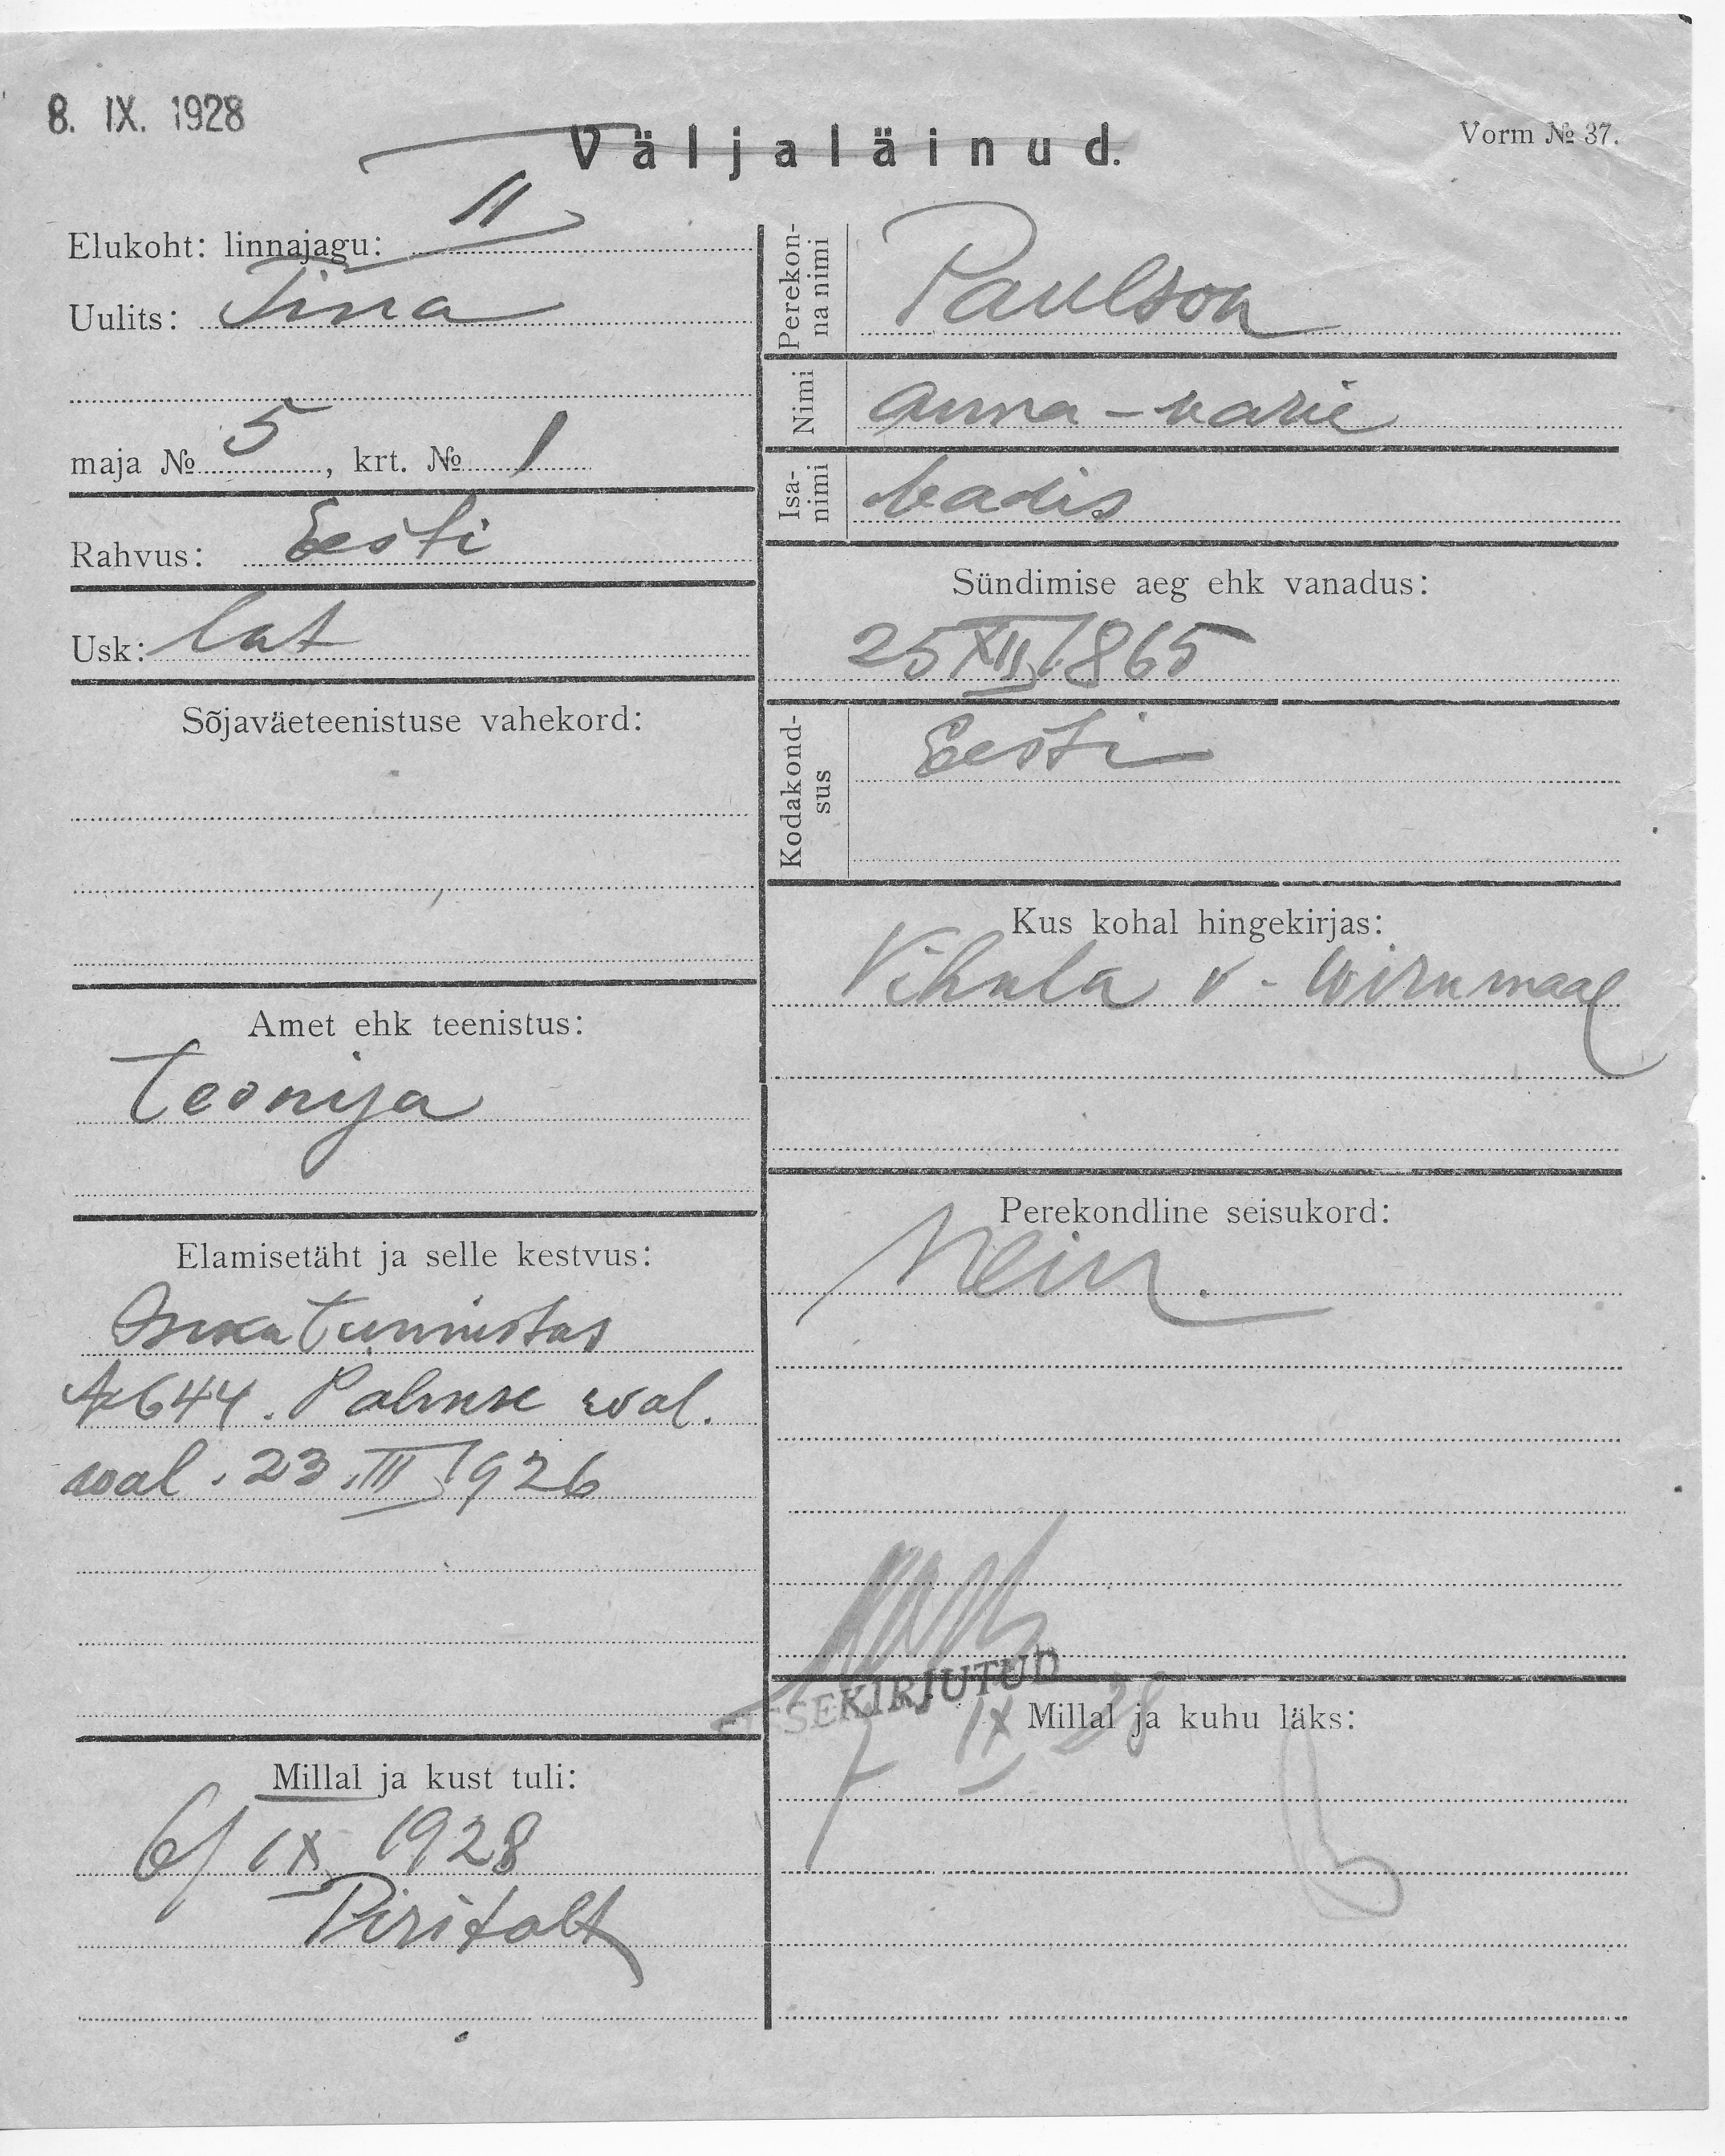 8. IX. 1928
Väljaläinud.
Vorm № 37.
Elukoht: linnajagu: II
Uulits: Tina
maja № 5, krt. № 1
Rahvus: Eesti
Usk: lut
Sõjaväeteenistuse vahekord:
Amet ehk teenistus:
Teenija
Elamisetäht ja selle kestvus:
Isikutunnistus
№ 644. Palmse wal.
wal. 23.III 1926
Millal ja kust tuli:
6/ IX 1928
Piritalt
Perekonna nimi
Paulson
Nimi
Anna-Marie
Isa-nimi
Madis
Sündimise aeg ehk vanadus:
25 XII 1865
Kodakondsus
Eesti
Kus kohal hingekirjas:
Vihula v. Wirumaal
Perekondline seisukord:
SISSEKIRJUTUD
7 IX 28
Millal ja kuhu läks: